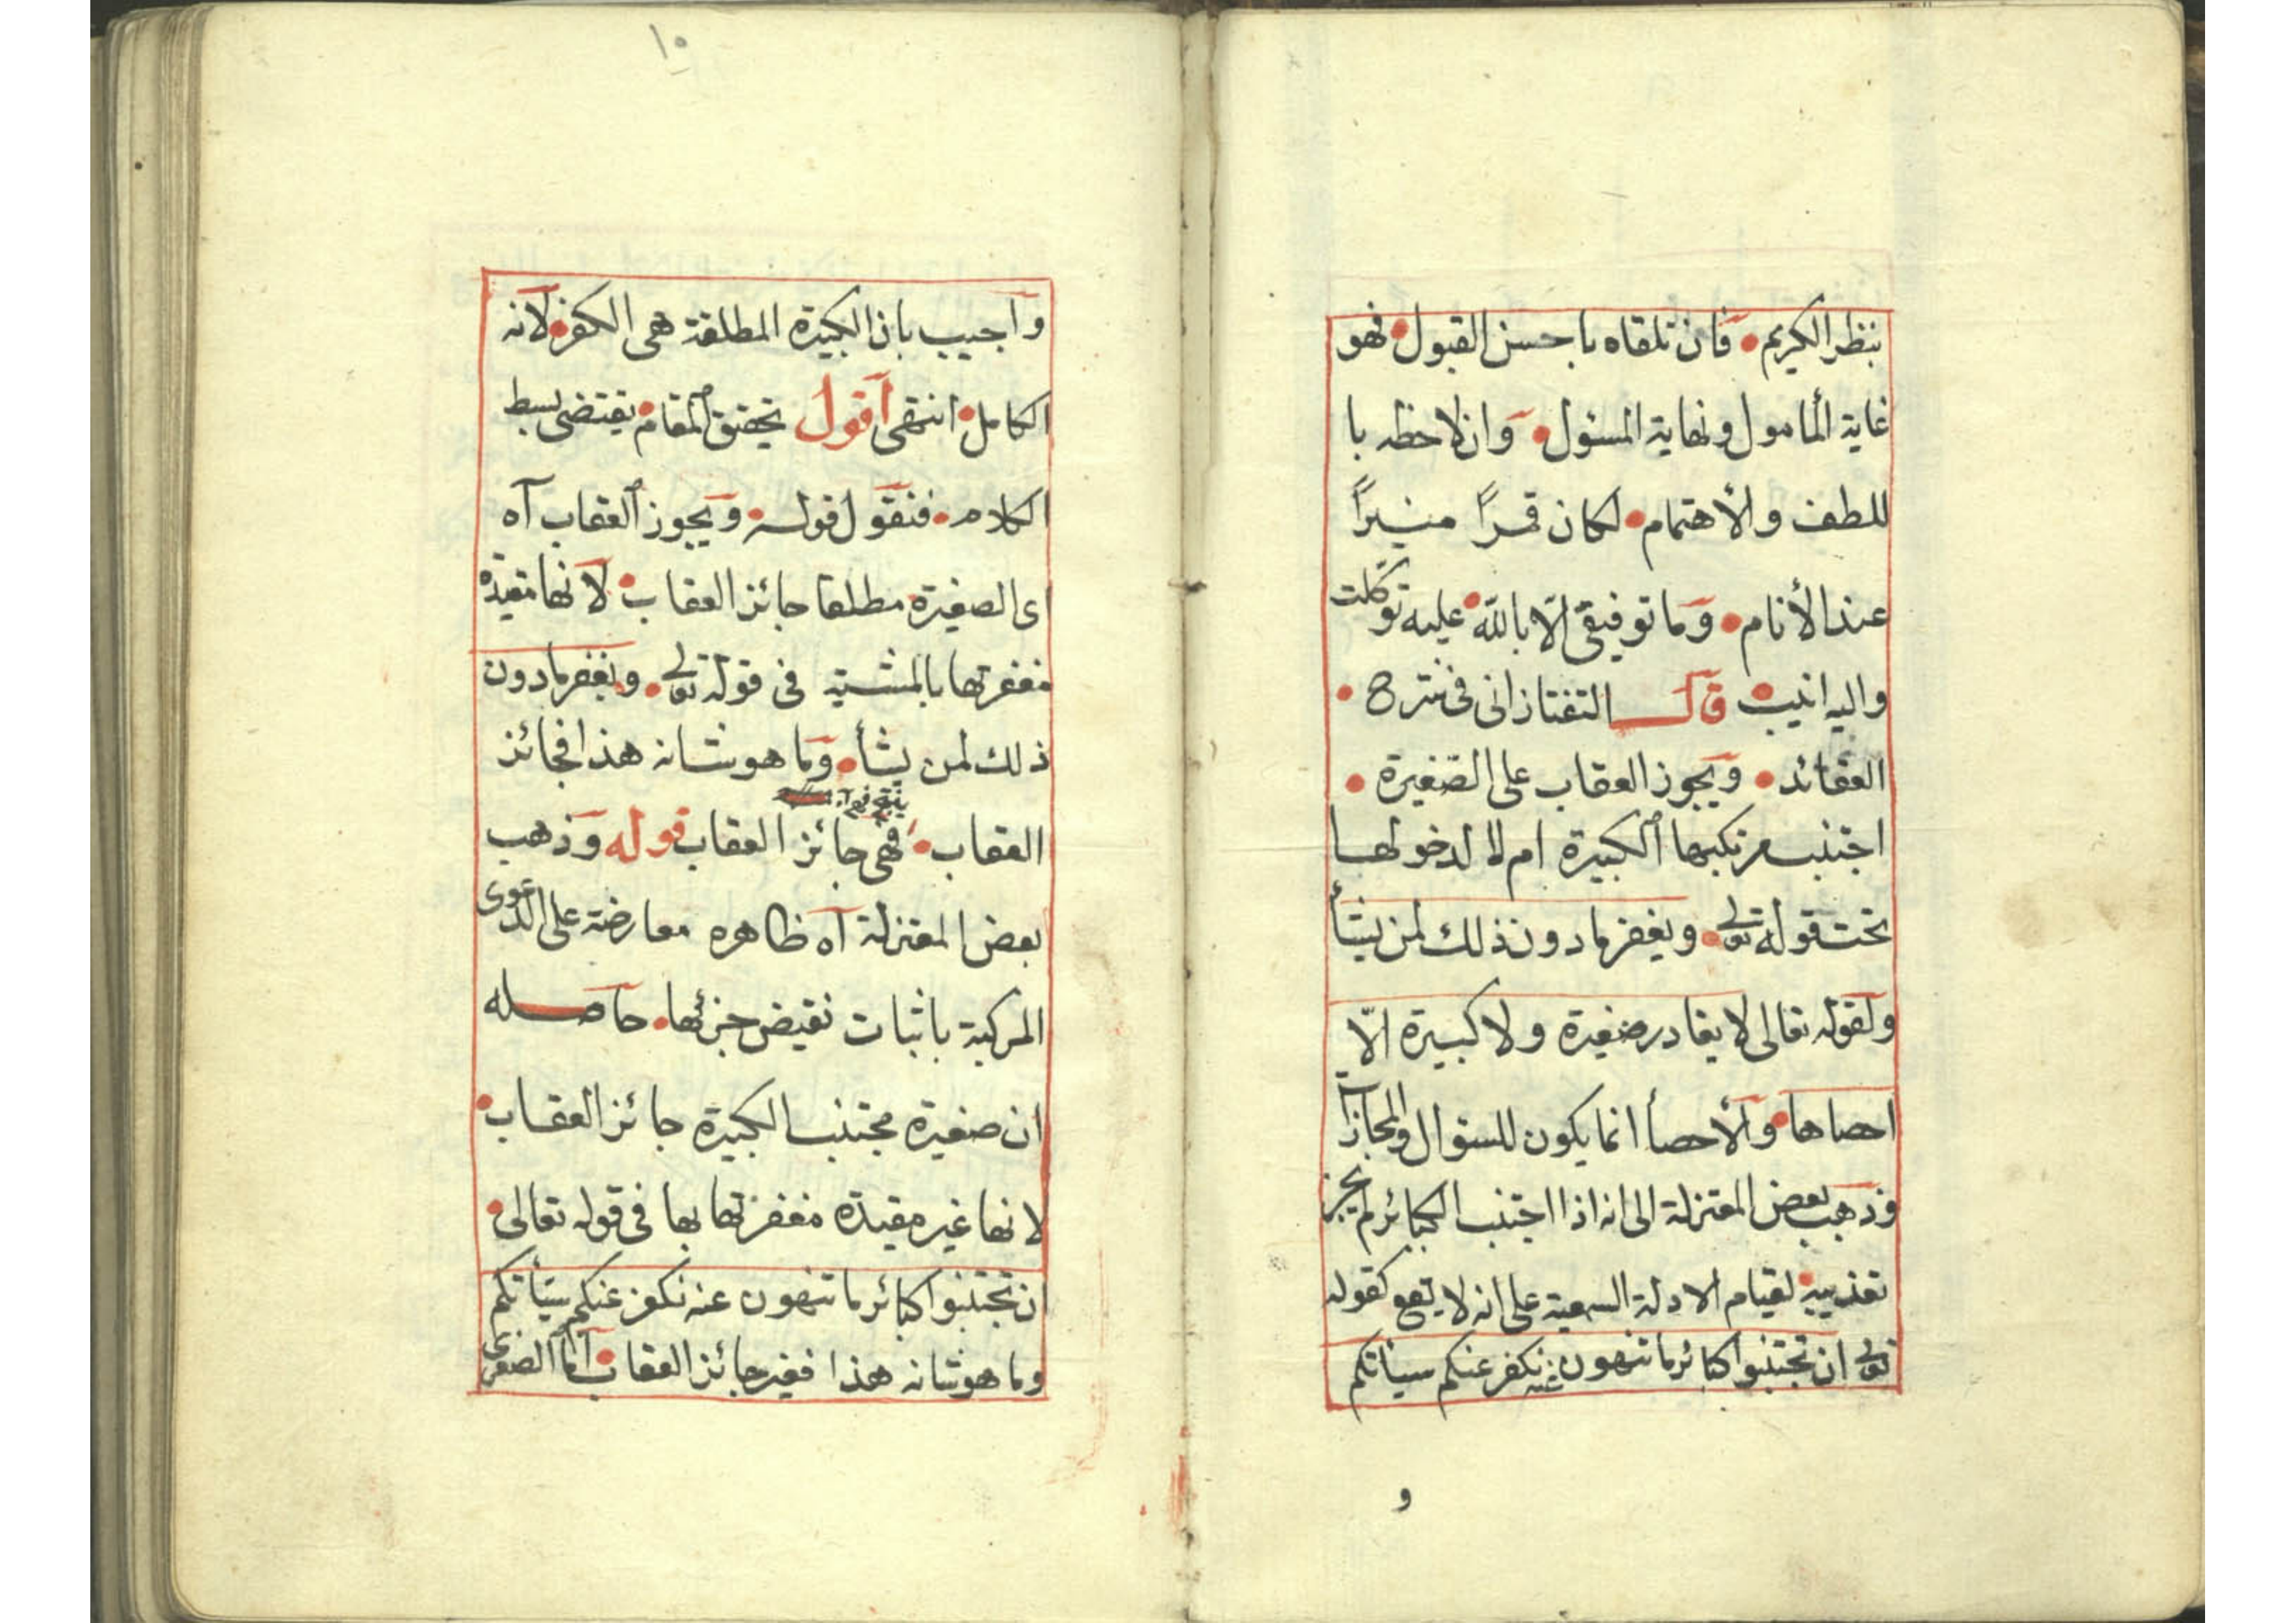 بنظر الكريم فان تلقاه باحسن القبول فهو
غاية المأمول ونهاية المسئول وان لاحظه با
للطف والأهتمام لكان قمرًا منيرًا
عند الأنام وما توفيقى الّا بالله عليه توكلت
واليه انيب قال التفتازانى فى شرح
العقائد ويجوز العقاب على الصّغيرة
اجتنب مرتكبها الكبيرة ام لا لدخولها
تحت قوله تعالى ويغفر ما دون ذلك لمن يشأ
ولقوله تعالى لا يغادر صغيرة ولا كبيرة الّا
احصاها والأحصأ انما يكون للسئوال والمجازآ
وذهب بعض المعتزلة الى انه اذا اجتنب الكبائر لم يجز
تعذيبه لقيام الادلة السمعية على انه لا يقع كقوله
تعالى ان تجتنبوا كبائر ما تنهون عنه نكفر عنكم سيئاتكم
و
١٠
واجيب بان الكبيرة المطلقة هى الكفر لانه
الكامل انتهى اقول تحقيق المقام يقتضى بسط
الكلام فنقول قوله ويجوز العقاب آه
اى الصغيرة مطلقا جائز العقاب لانها مقيدة
مغفرتها بالمشية فى قوله تعالى ويغفر ما دون
ذلك لمن يشأ وما هو شانه هذا فجائز
العقاب فهى جائز العقاب قوله وذهب
بعض المعتزلة آه ظاهره معارضة على الدعوى
المركبة باثبات نقيض جزئها حاصله
ان صغيرة مجتنب الكبيرة جائز العقاب
لانها غير مقيدة مغفرتها بها فى قوله تعالى
ان تجتنبوا كبائر ما تنهون عنه نكفر عنكم سيأتكم
وما هو شانه هذا فغير جائز العقاب اما الصغرى